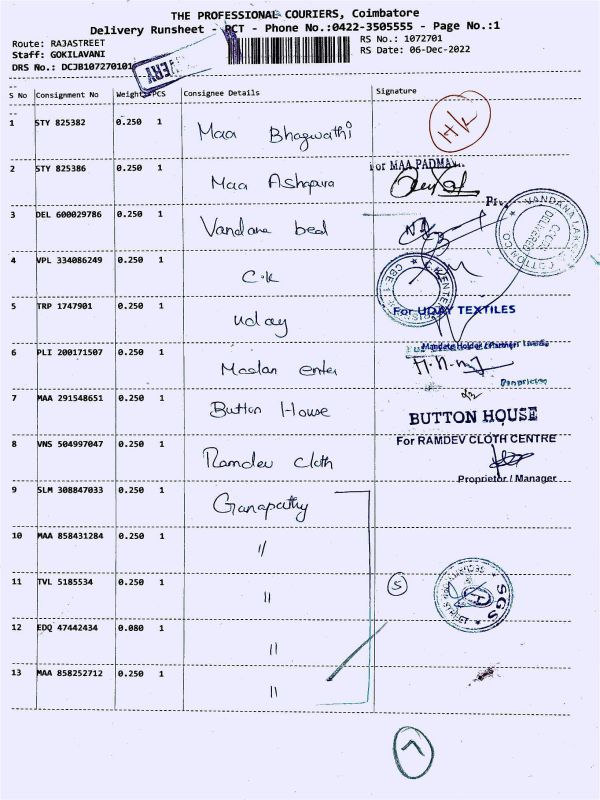 THE PROFESSIONAL COURIERS, Coimbatore
Delivery Runsheet - PCT - Phone No.:0422-3505555 - Page No.:1
Route: RAJASTREET
RS No.: 1072701
Staff: GOKILAVANI
RS Date: 06-Dec-2022
DRS No.: DCJB107270101
S No Consignment No Weight PCS Consignee Details Signature
1 STY 825382 0.250 1 Maa Bhagwathi H/k
2 STY 825386 0.250 1 Maa Ashapura
For MAA PADMA
3 DEL 600029786 0.250 1 Vandana bed
4 VPL 334086249 0.250 1 C.K
5 TRP 1747901 0.250 1 uday
For UDAY TEXTILES
6 PLI 200171507 0.250 1 enter
7 MAA 291548651 0.250 1 Button House
BUTTON HOUSE
8 VNS 504997047 0.250 1 Ramdev Cloth
For RAMDEV CLOTH CENTRE
Proprietor / Manager
9 SLM 308847033 0.250 1 Ganapathy
10 MAA 858431284 0.250 1 "
11 TVL 5185534 0.250 1 "
5
SGS
12 EDQ 47442434 0.080 1 "
13 MAA 858252712 0.250 1 "